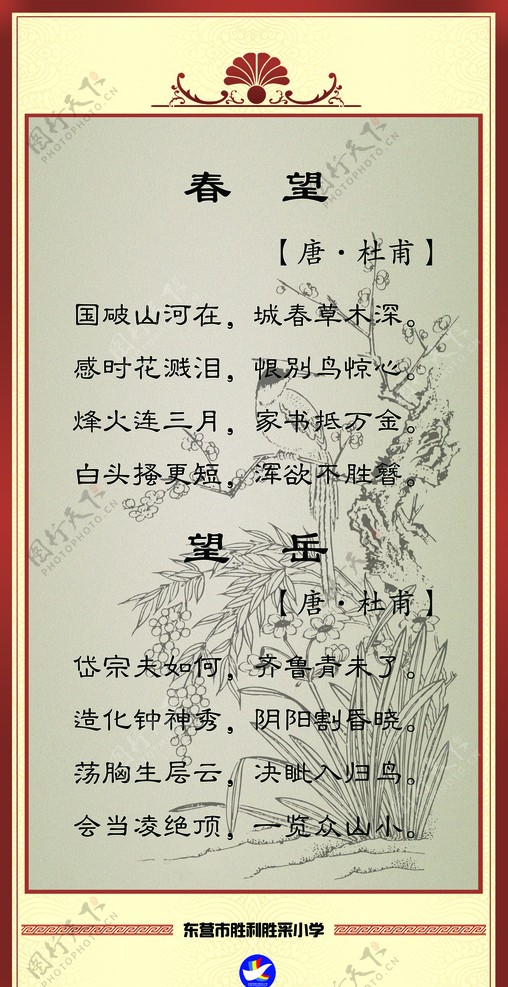 春 望
【唐·杜甫】
国破山河在，城春草木深。
感时花溅泪，恨别鸟惊心。
烽火连三月，家书抵万金。
白头搔更短，浑欲不胜簪。
望 岳
【唐·杜甫】
岱宗夫如何，齐鲁青未了。
造化钟神秀，阴阳割昏晓。
荡胸生层云，决眦入归鸟。
会当凌绝顶，一览众山小。
东营市胜利胜采小学
图行天下 PHOTOPHOTO.CN